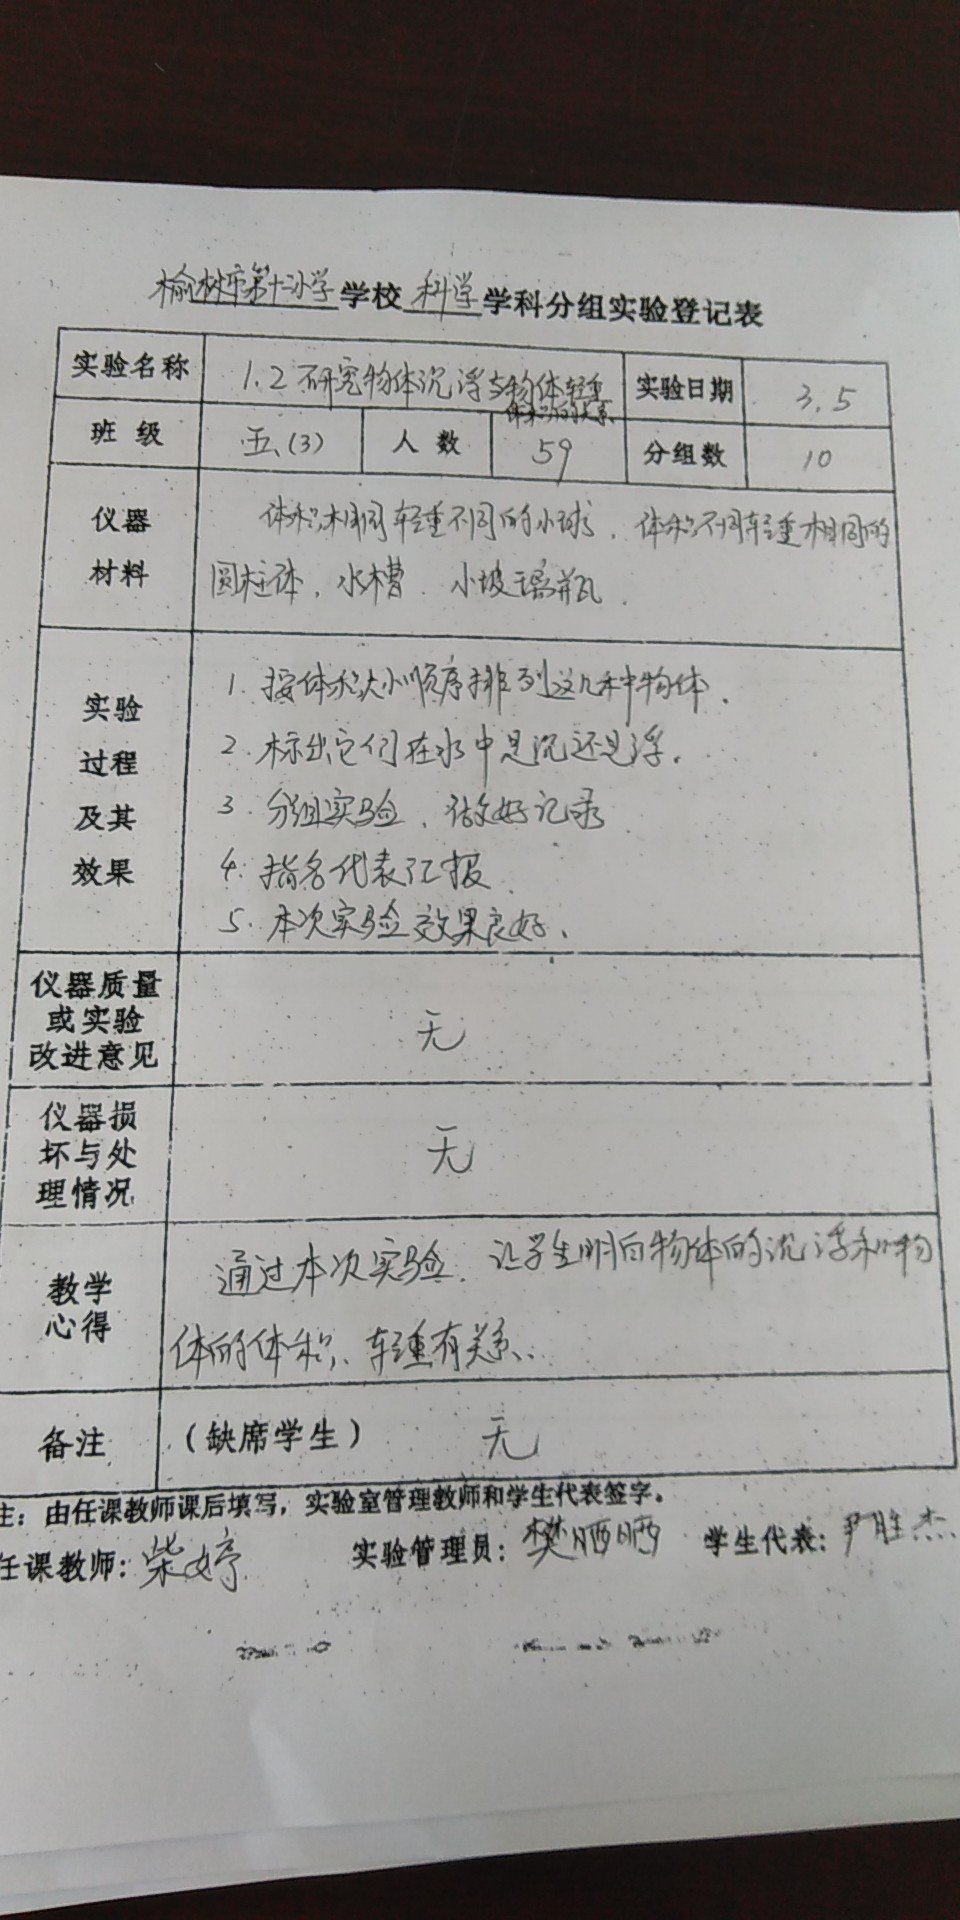 榆树市第十二小学学校科学学科分组实验登记表
实验名称 1.2研究物体沉浮与物体轻重 实验日期 3.5
体积的关系
班级 五.(3) 人数 59 分组数 10
仪器
材料
体积相同轻重不同的小球.体积不同轻重相同的
圆柱体.水槽.小玻璃瓶.
实验
过程
及其
效果
1.按体积大小顺序排列这几种物体.
2.标出它们在水中是沉还是浮.
3.分组实验.做好记录
4.指名代表汇报.
5.本次实验效果良好.
仪器质量
或实验
改进意见
无
仪器损
坏与处
理情况
无
教学
心得
通过本次实验.让学生明白物体的沉浮和物
体的体积、轻重有关系.
备注 (缺席学生) 无
注:由任课教师课后填写,实验室管理教师和学生代表签字。
任课教师:柴婷 实验管理员:樊晒晒 学生代表:尹胜杰